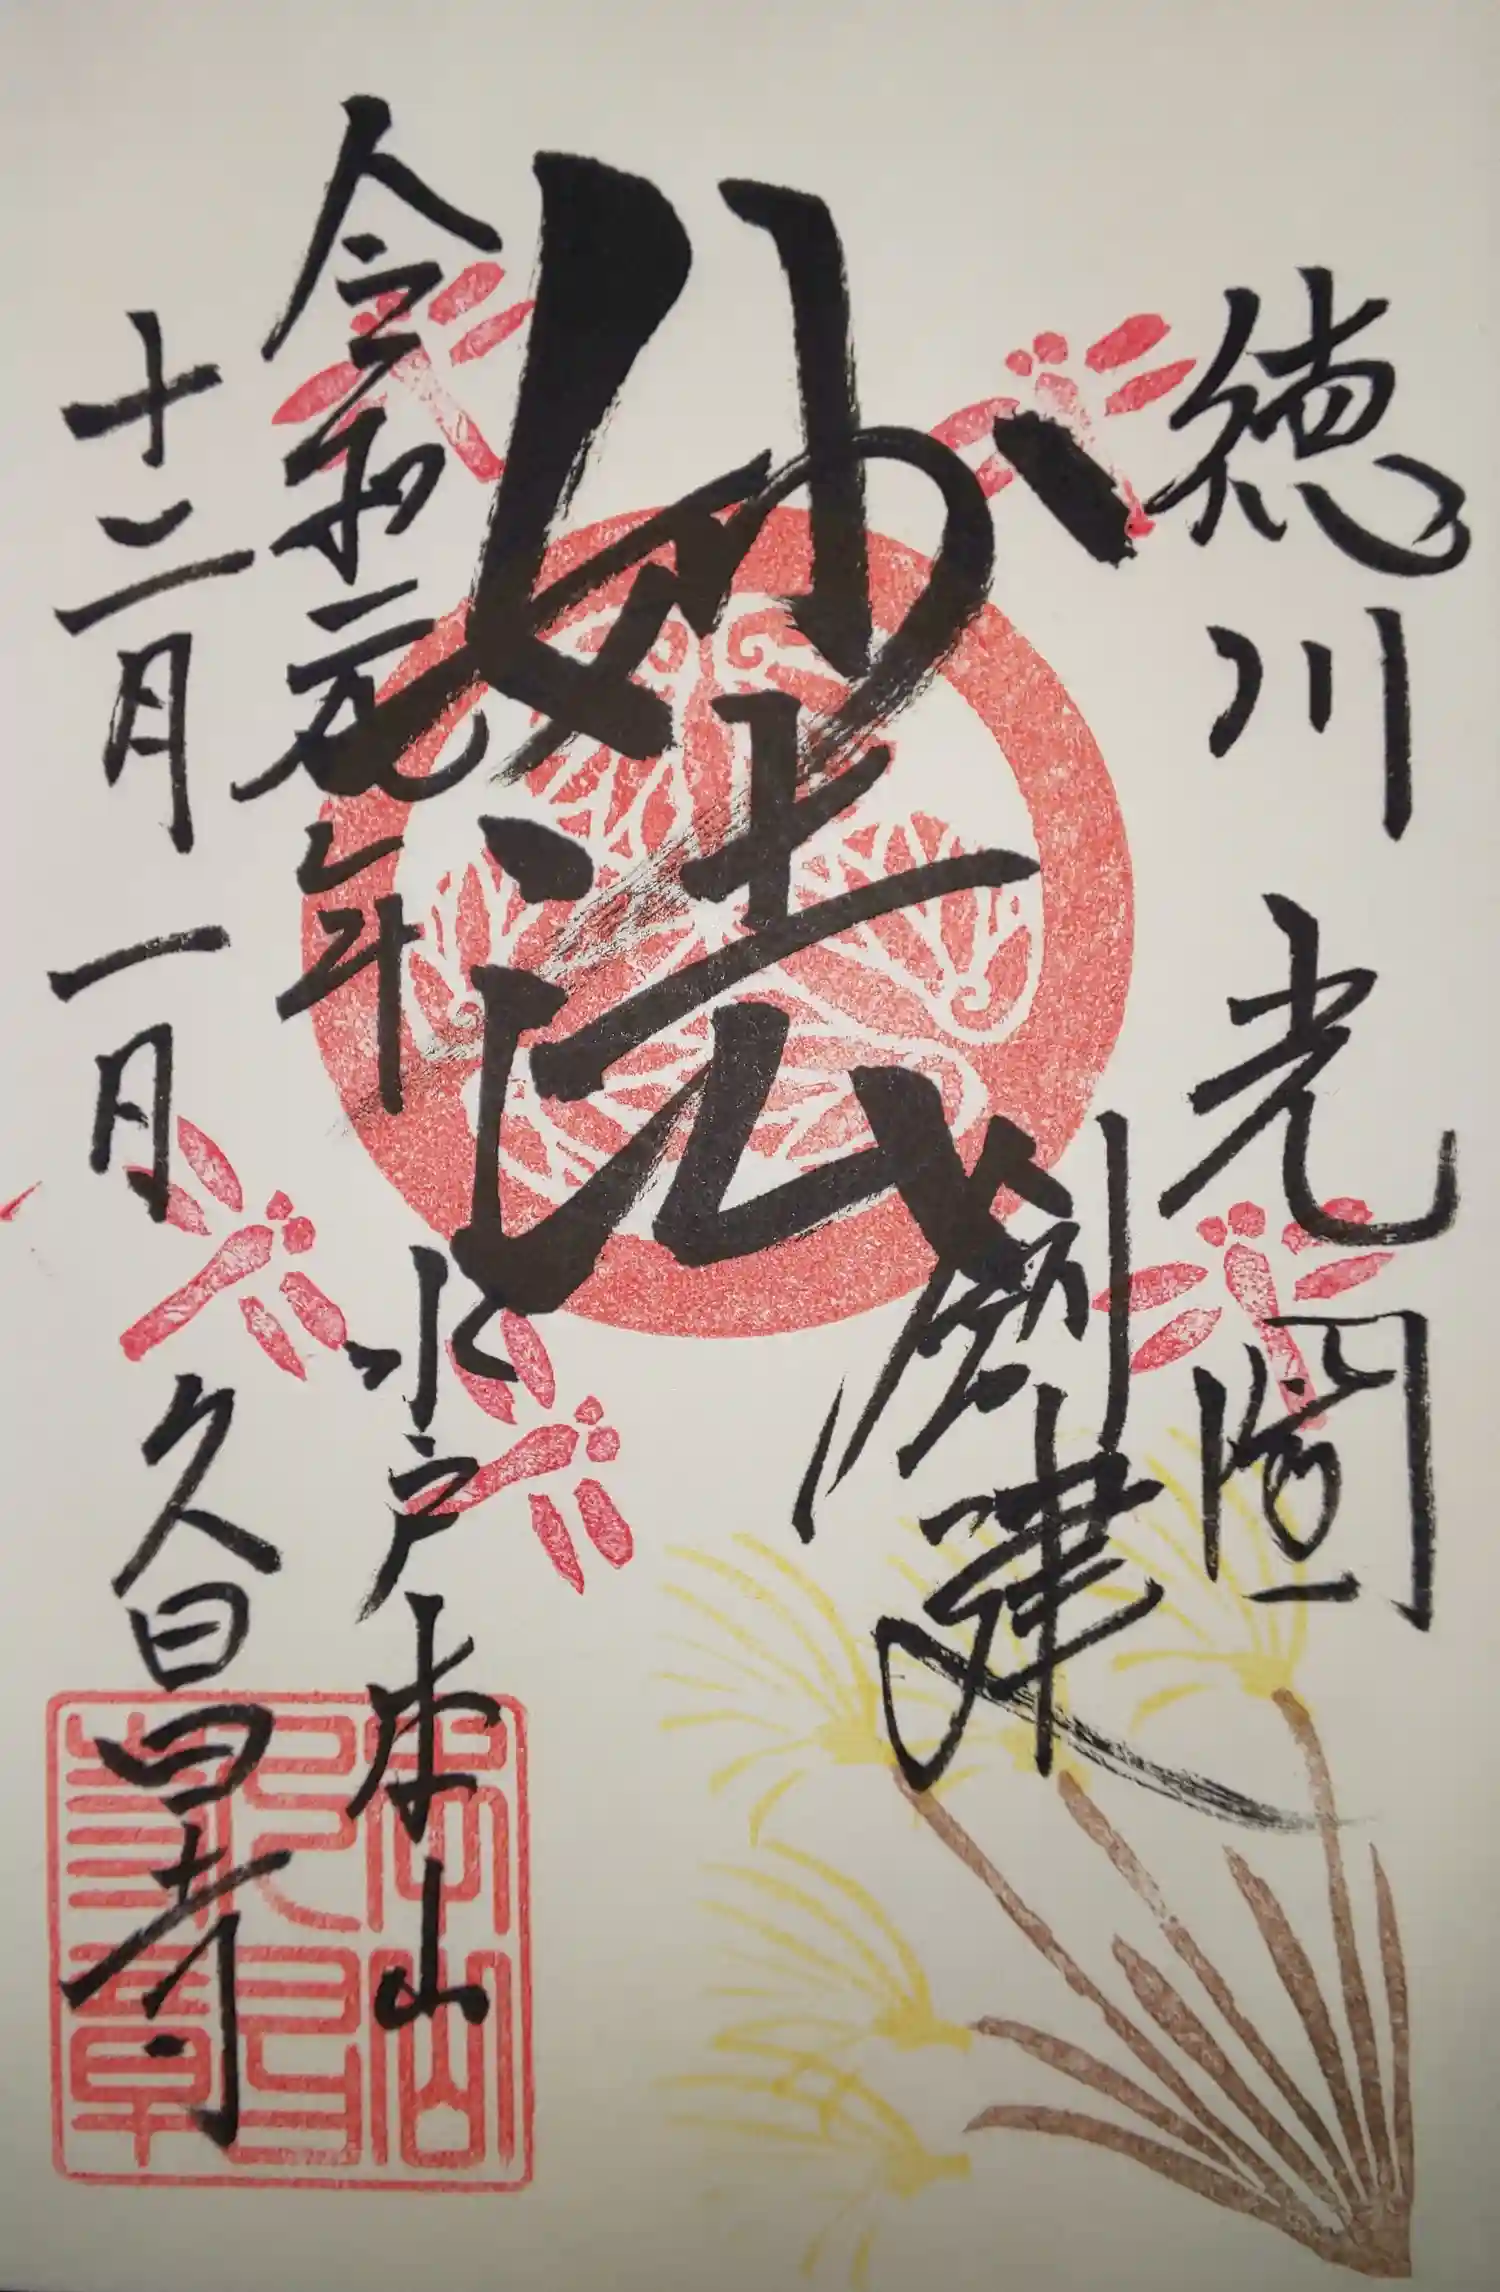 徳川光圀
創建
妙法
令和元年
十二月一日
水戸東山
久昌寺